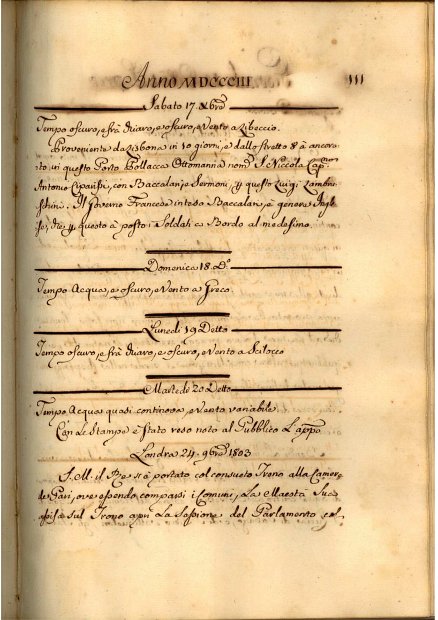 Anno MDCCCIII. 111
Sabato 17. Xbre
Tempo oscuro, e frà duaro, e oscuro, e Vento a Libeccio.
Proveniente da Lisbona in 10 giorni, e dallo stretto 8 à ancora-
to in questo Porto Pollacca Ottomanna nomta S. Niccola Capn
Antonio, con Baccalari, e Sermoni, p questo Luigi Zambe-
Il Governo Francese inteso Baccalari, è genere Ingle-
se, die p questo à posto i Soldati a Bordo al medesimo.
Domenica 18. Do
Tempo Acqua, e oscuro, e Vento a Greco.
Lunedì 19 Detto
Tempo oscuro, e frà duaro, e oscuro, e Vento a Scilocco
Martedì 20 Detto
Tempo Acqua quasi continova, e Vento variabile.
Con Le Stampe è stato reso noto al Pubblico L'appo
Londra 24. 9bre 1803
S. M. il Re si à portato col consueto Treno alla Camer-
de Pari, ove essendo comparsi i Comuni, La Maestà Sua
assisa sul Trono aprì La Sessione del Parlamento col